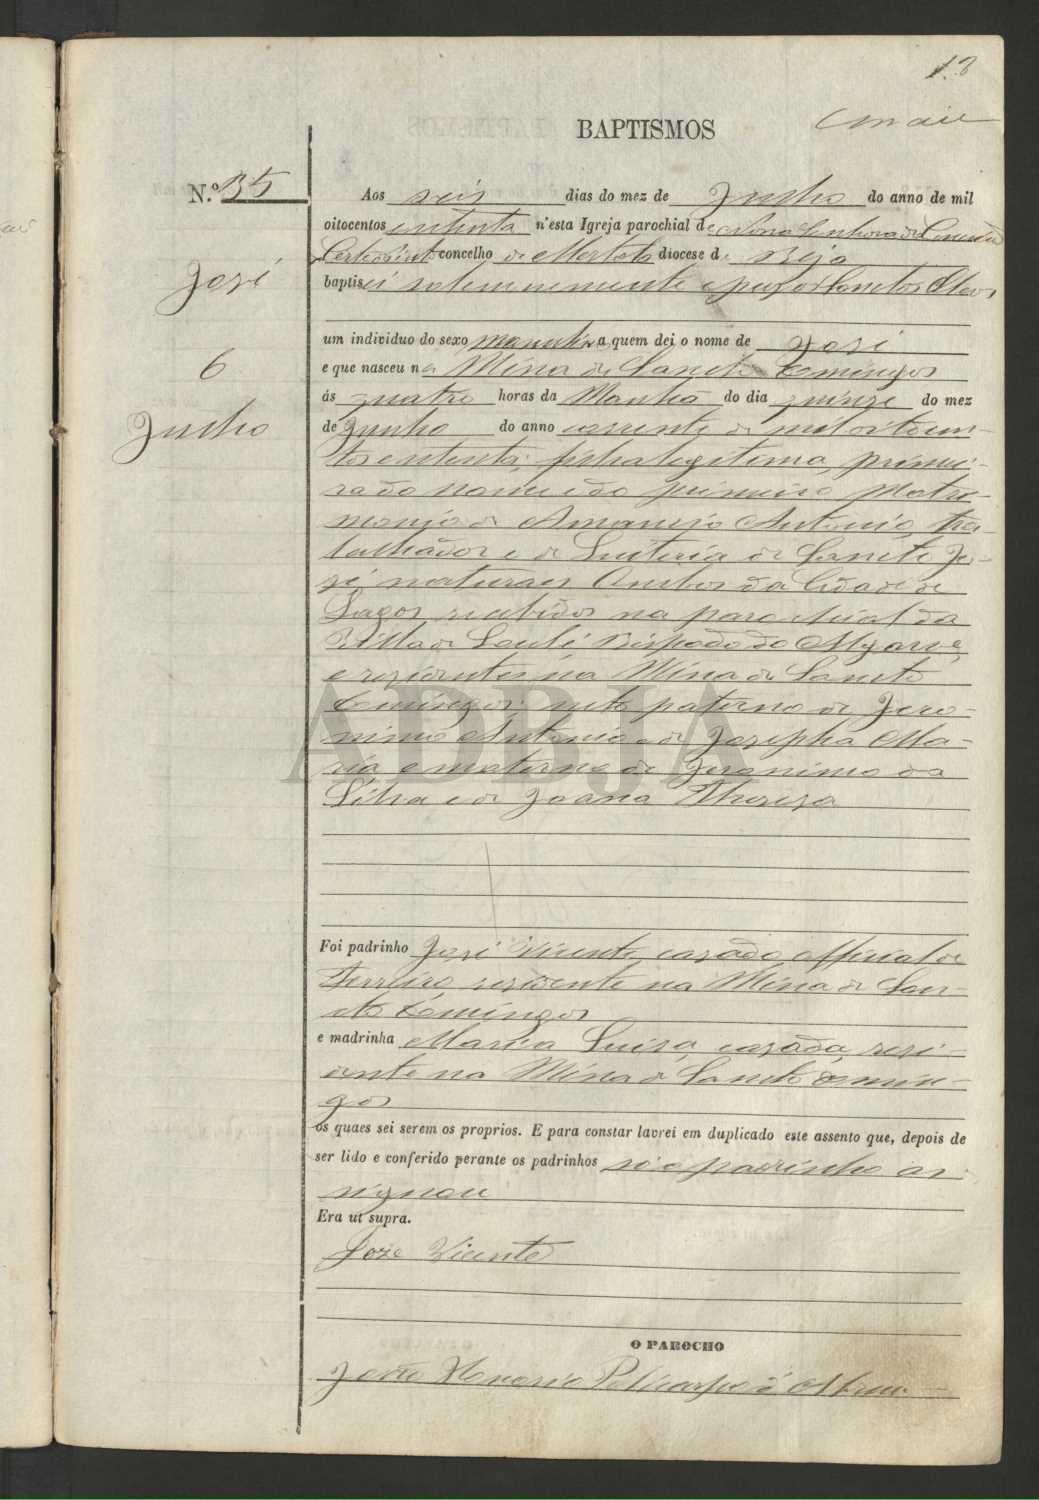 13
BAPTISMOS
N.º 35
Aos seis dias do mez de Julho do anno de mil
oitocentos oitenta n'esta Igreja parochial de Nossa Senhora da Conceição
concelho de Mertola diocese de Beja
baptisei solemnemente e puz os Sanctos Oleos
José
um individuo do sexo masculino a quem dei o nome de José
6
e que nasceu na Mina de Sancto Domingos
ás quatro horas da Manhã do dia quinze do mez
Julho
de Junho do anno corrente de mil oitocen-
tos oitenta, filho legitimo, primei-
ro do nome e do primeiro Matri-
monio de Amancio Antonio, tra-
balhador e de Quiteria de Sancto Jo-
sé naturaes Ambos da Cidade de
Lagos recebidos na parochial da
Villa de Loulé Bispado do Algarve,
e rezidentes na Mina de Sancto
Domingos: neto paterno de Jero-
nimo Antonio e de Jozepha Ma-
ria e materno de Jeronimo da
Silva e de Joana Thereza
Foi padrinho José Vicente, cazado official de
Ferreiro, rezidente na Mina de San-
cto Domingos
e madrinha Maria Luiza, cazada, rezi-
dente na Mina de Sancto Domin-
gos
os quaes sei serem os proprios. E para constar lavrei em duplicado este assento que, depois de
ser lido e conferido perante os padrinhos só o padrinho as-
signou
Era ut supra.
Joze Vicente
O PAROCHO
João Honorio Pollicarpo d'Abreu
ADBJA